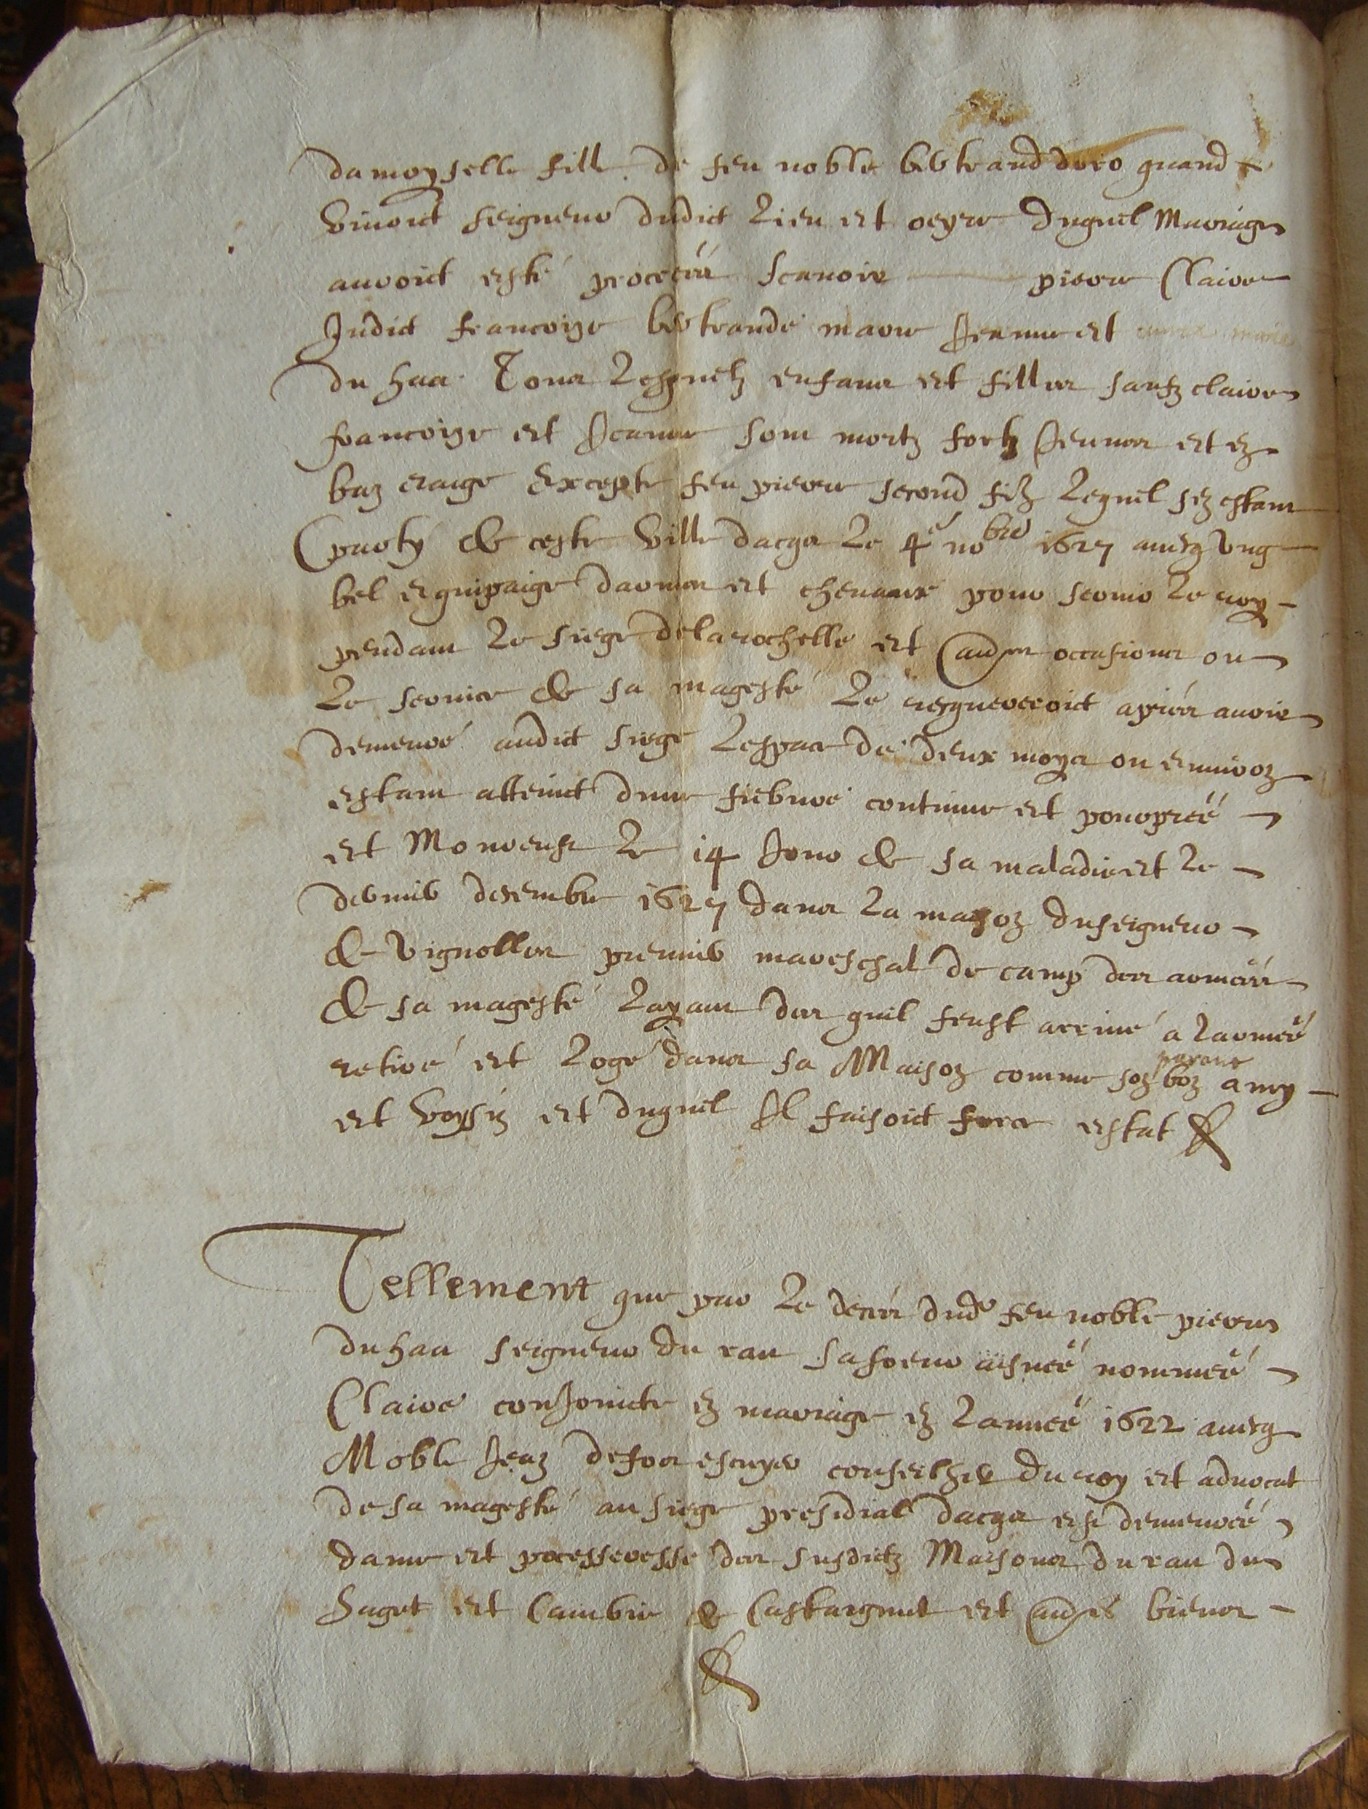 damoyselle fille de feu noble bertrand doro quand
vivoict seigneur dudict lieu et oeyre duquel mariage
auroict esté procreés scavoir pierre Claire
Judict francoize bertrande marie Jeanne et
du haa Tous lesquelz enfans et filles sauf claire
francoize et Jeanne sont mortz fort Jeunes et en
bas eaige excepte feu pierre second filz lequel sen estant
party de ceste ville dacqs le 4e nobre 1627 avecq ung
bel equipaige darmes et chevaux pour servir le roy
pendant le siege de la rochelle et occasions ou
le service de sa magesté le requerroict apres avoir
demeuré audict siege lespace de deux moys ou environ
estant atteinct dune fiebvre continue et pourpreé
et Moureust le 14 Jour de sa maladie et le
dernier desembre 1627 dans la maison du seigneur
de vignolles premier mareschal de camp des armeés
de sa magesté layant des quil feust arrivé a larmeé
retiré et logé dans sa Maison comme son bon parant amy
et voysin et duquel Il faisoict force estat
Tellement que par le deces dudt feu noble pierre
du haa seigneur du rau sa soeur aisneé nommeé
Claire conJoincte en mariage en lanneé 1622 avecq
Noble Jean defos escuyer conseilher du roy et advocat
de sa magesté au siege presidial dacqs est demeureé
dame et pocesseresse des susdictz Maisons du rau du
haget et Cambre de Castaignet et biens